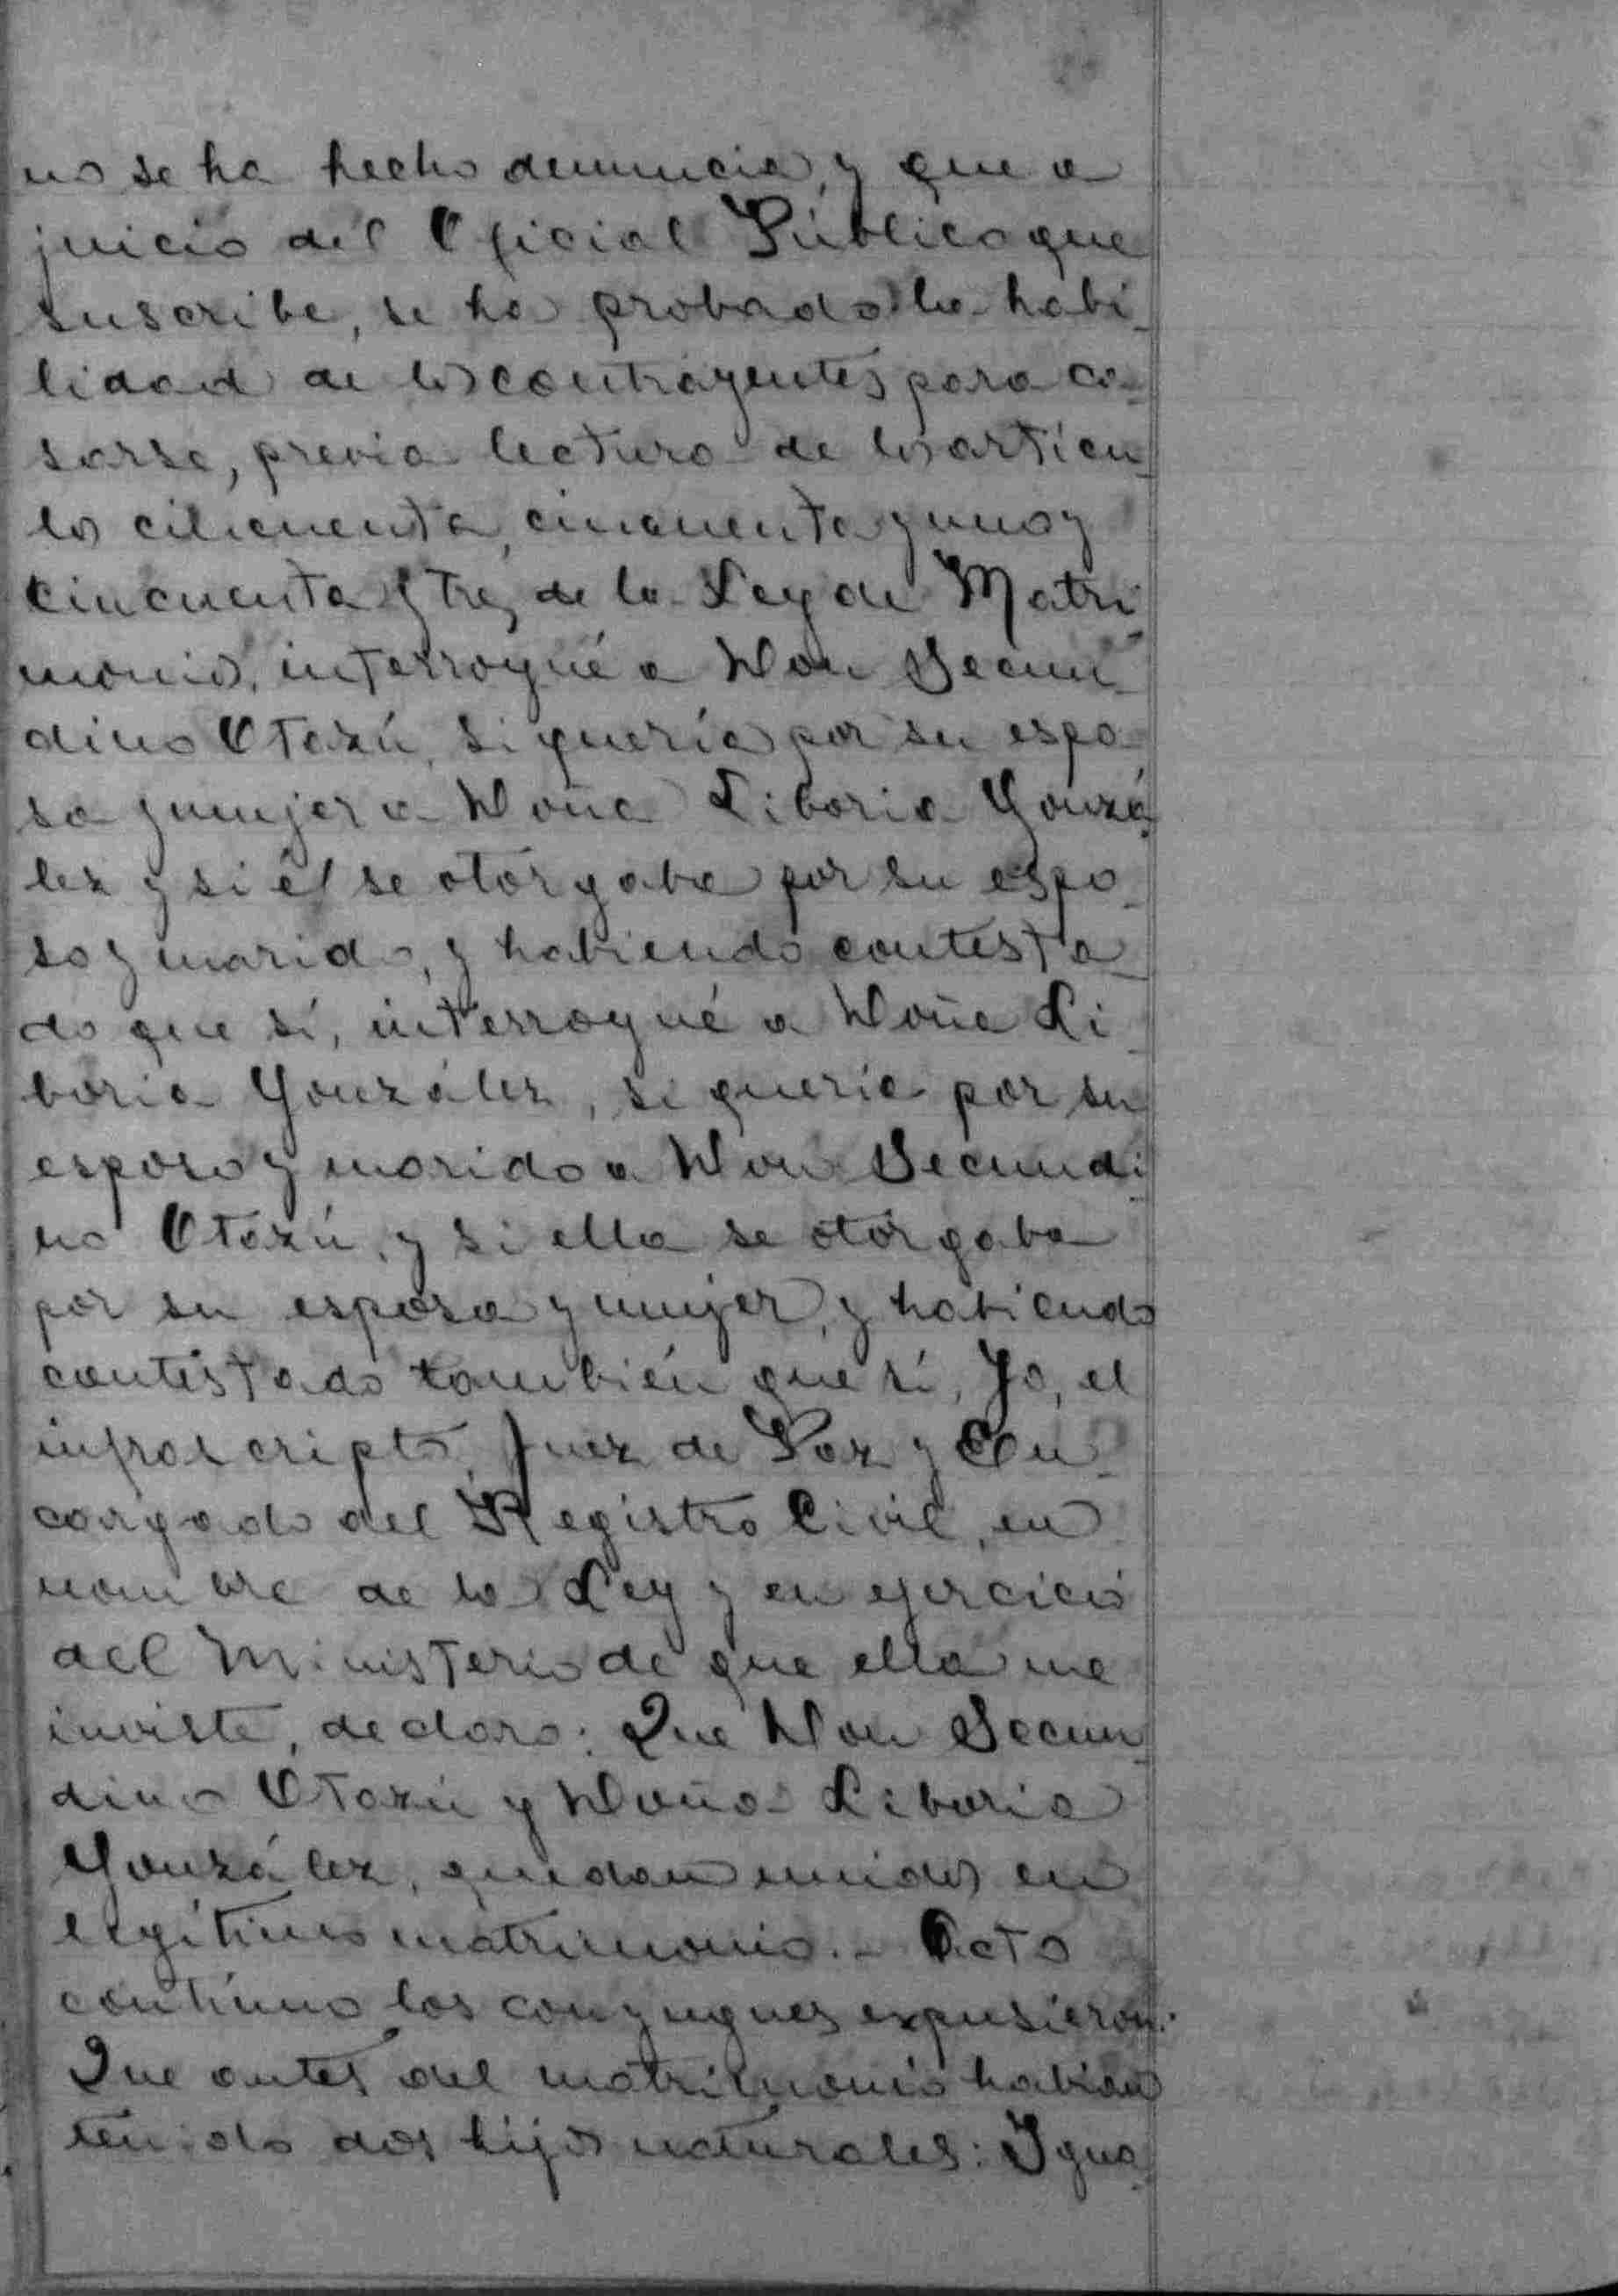 no se ha hecho denuncia, y que a
juicio del Oficial Público que
suscribe, se ha probado la habi-
lidad de los contrayentes para ca-
sarse, previa lectura de los artícu-
los cincuenta, cincuenta y uno y
cincuenta y tres de la Ley de Matri-
monio, interrogué a Don Secun-
dino Otazú, si quería por su espo-
sa y mujer a Doña Liboria Gonzá-
lez y si él se otorgaba por su espo-
so y marido, y habiendo contesta-
do que sí, interrogué a Doña Li-
boria González, si quería por su
esposo y marido a Don Secundi-
no Otazú, y si ella se otorgaba
por su esposa y mujer, y habiendo
contestado también que sí, Yo, el
infrascripto, Juez de Paz y En-
cargado del Registro Civil, en
nombre de la Ley y en ejercicio
del Ministerio de que ella me
inviste, declaro: Que Don Secun-
dino Otazú y Doña Liboria
González, quedan unidos en
legítimo matrimonio.- Acto
contínuo los conyugues expusieron:
Que antes del matrimonio habían
tenido dos hijos naturales: Igna-